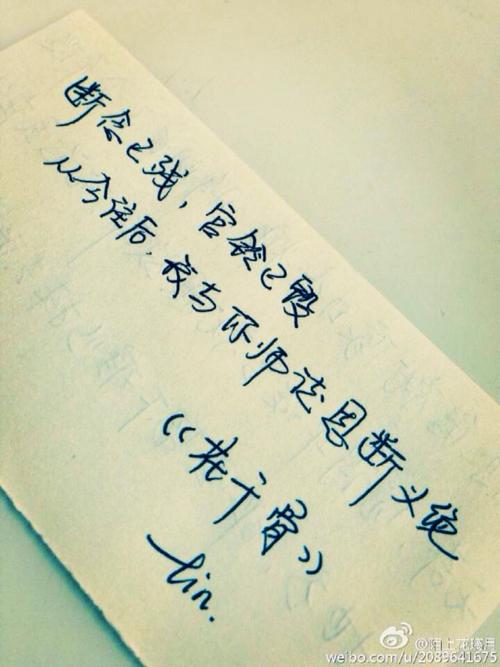 断念已残，宫铃已毁
从今往后，我与你师徒恩断义绝
《花千骨》
lin.
weibo.com/u/2089641675